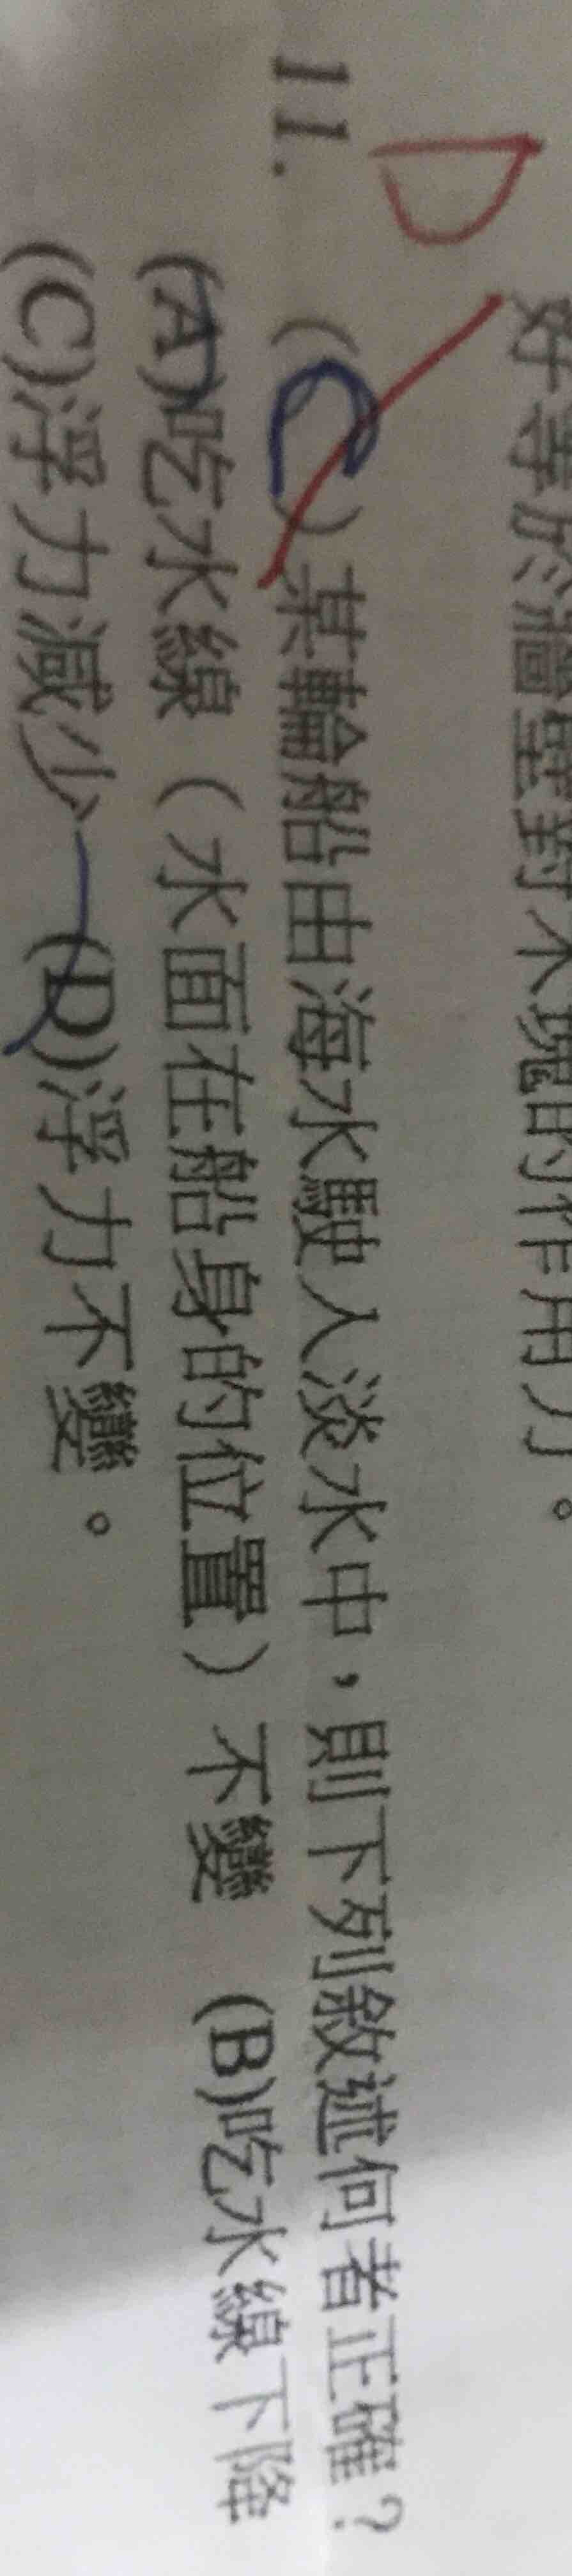 好等於牆壁對木塊的作用力。
D
11. (C)某輪船由海水駛入淡水中，則下列敘述何者正確？
(A)吃水線（水面在船身的位置）不變 (B)吃水線下降
(C)浮力減少 (D)浮力不變。